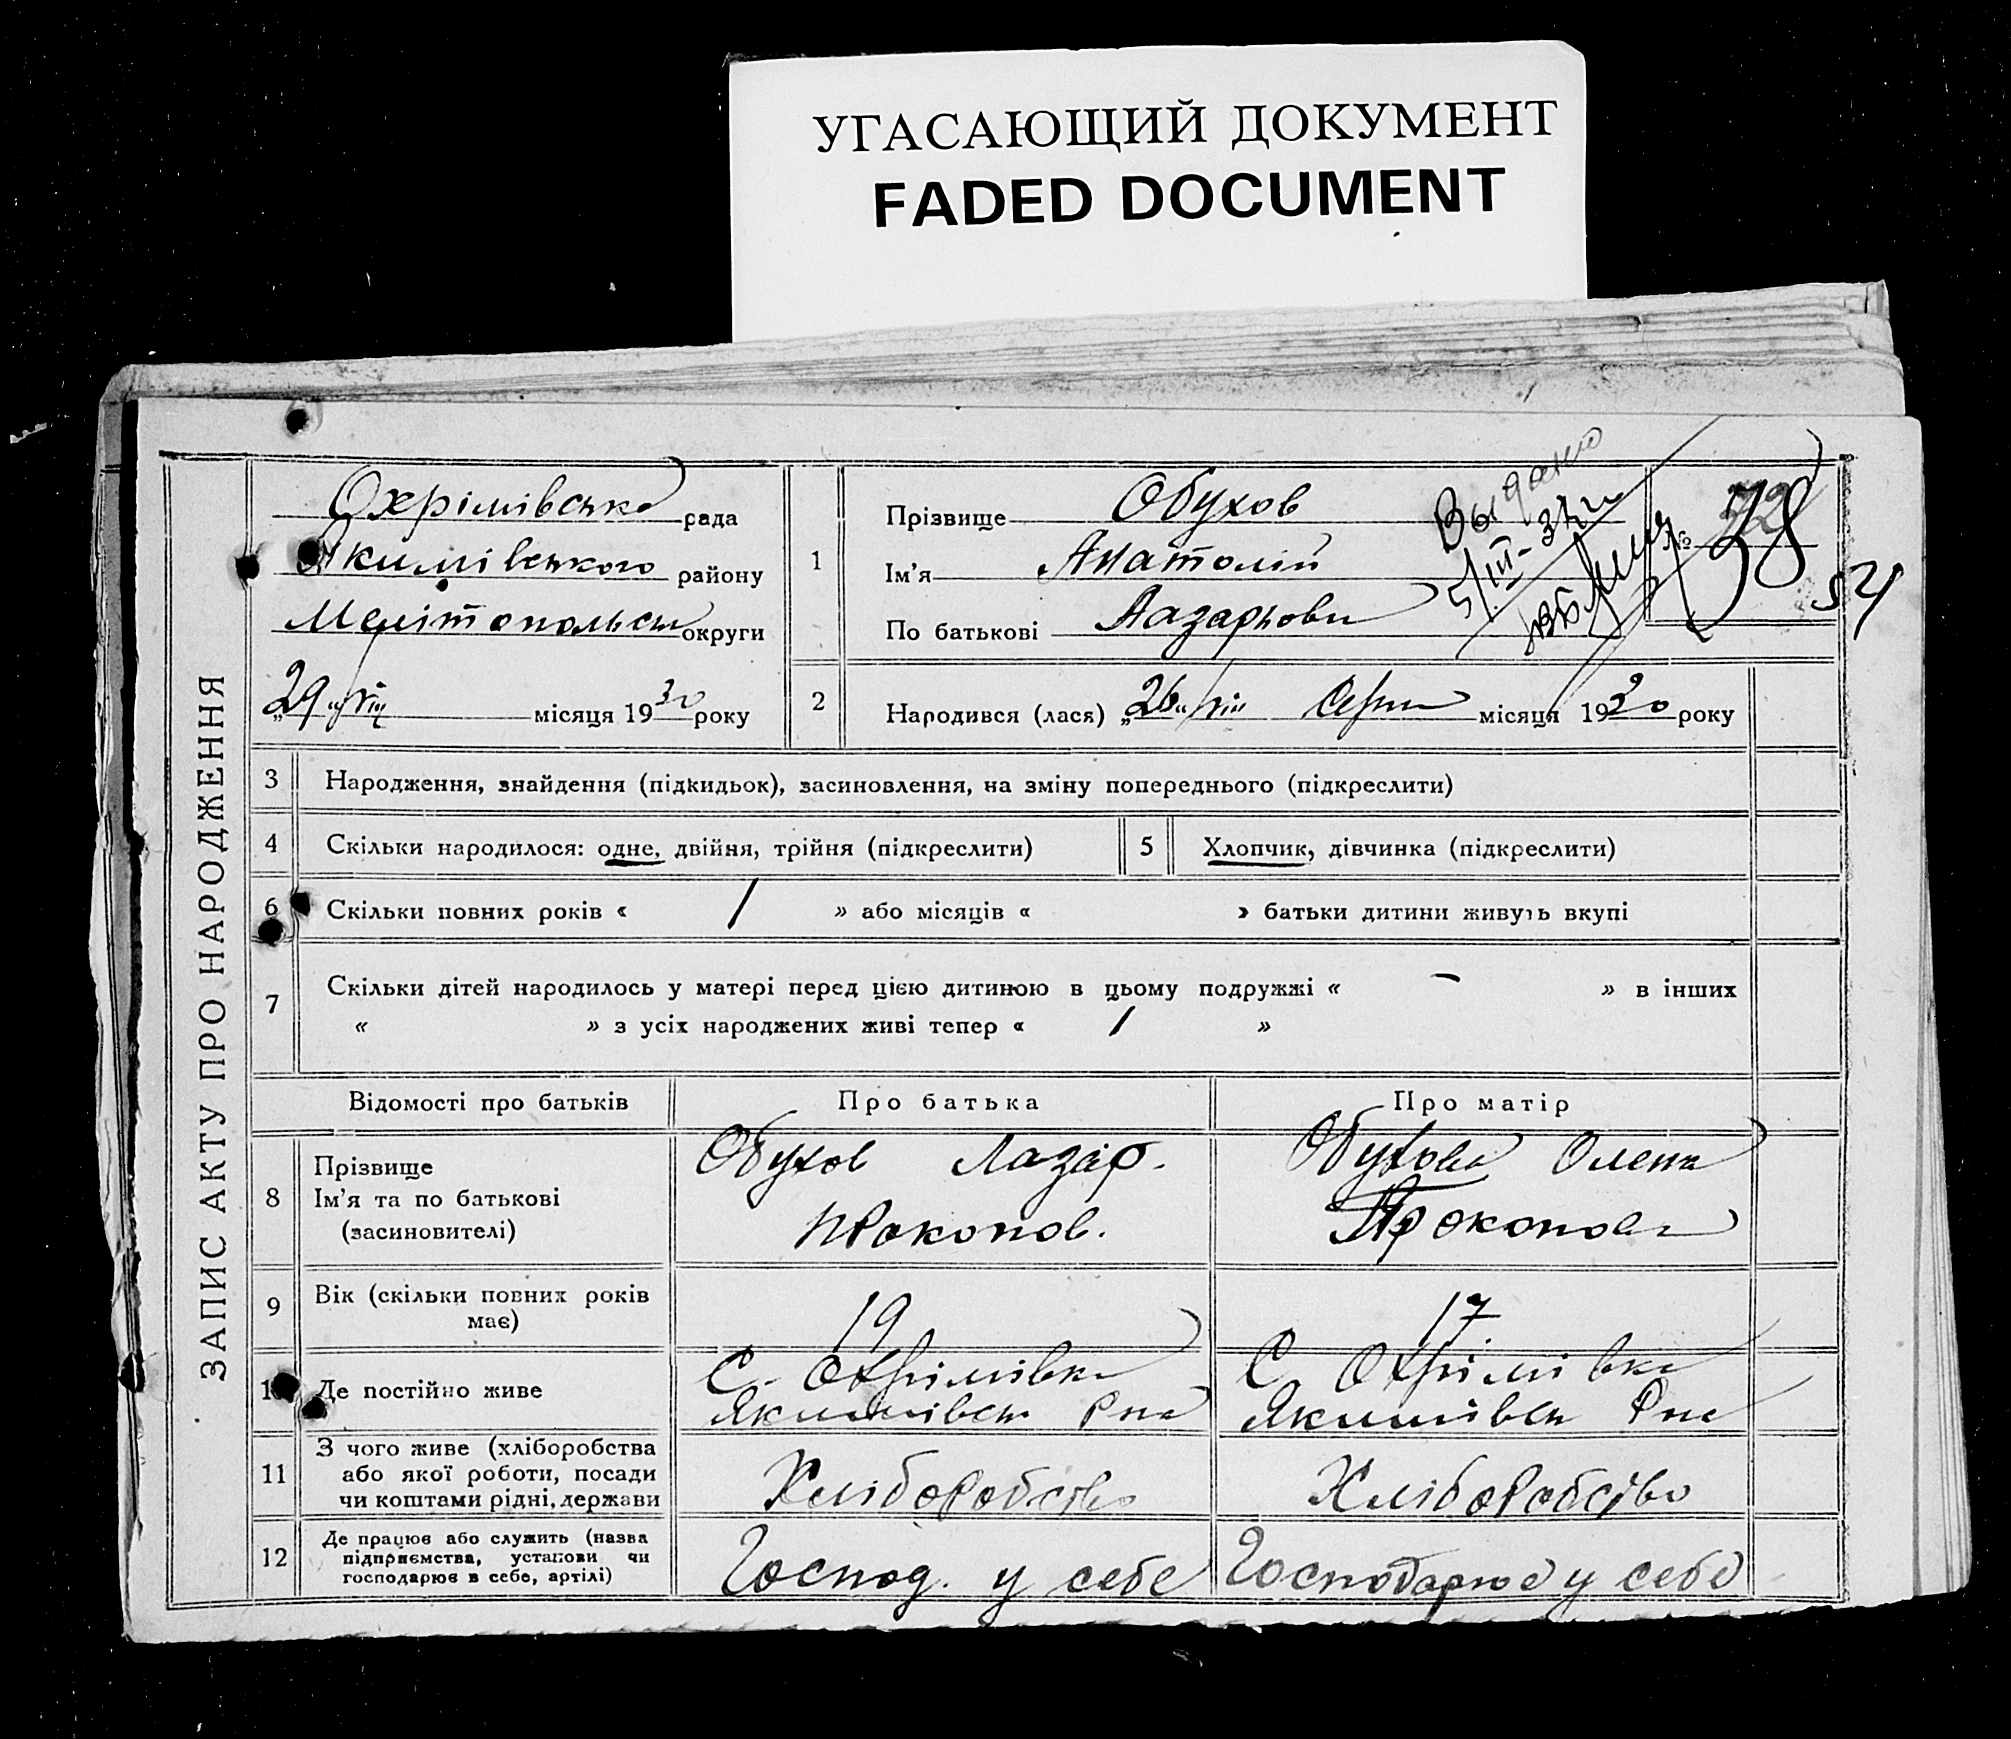 УГАСАЮЩИЙ ДОКУМЕНТ
FADED DOCUMENT
ЗАПИС АКТУ ПРО НАРОДЖЕННЯ
Охрімівська рада
Якимівського району
Мелітопольськ округи
„29" VIII місяця 1930 року
1
Прізвище Обухов
Ім'я Анатолій
По батькові Лазарьови
Выдано
5/III-37
№ 38
54
2
Народився (лася) „26" VIII Серпн місяця 1930 року
3 Народження, знайдення (підкидьок), засиновлення, на зміну попереднього (підкреслити)
4 Скільки народилося: одне, двійня, трійня (підкреслити)
5 Хлопчик, дівчинка (підкреслити)
6 Скільки повних років « 1 » або місяців « » батьки дитини живуть вкупі
7 Скільки дітей народилось у матері перед цією дитиною в цьому подружжі « – » в інших
« » з усіх народжених живі тепер « 1 »
Відомості про батьків Про батька Про матір
8
Прізвище
Ім'я та по батькові
(засиновителі)
Обухов Лазар.
Прокопов.
Обухова Олена
Прокопова
9
Вік (скільки повних років
має)
19
17
10 Де постійно живе
С. Охрімівка
Якимівськ Рна
С Охрімівка
Якимівськ Рна
11
З чого живе (хліборобства
або якої роботи, посади
чи коштами рідні, держави
Хліборобство
Хліборобство
12
Де працює або служить (назва
підприємства, установи чи
господарює в себе, артілі)
Господ. у себе
Господарює у себе